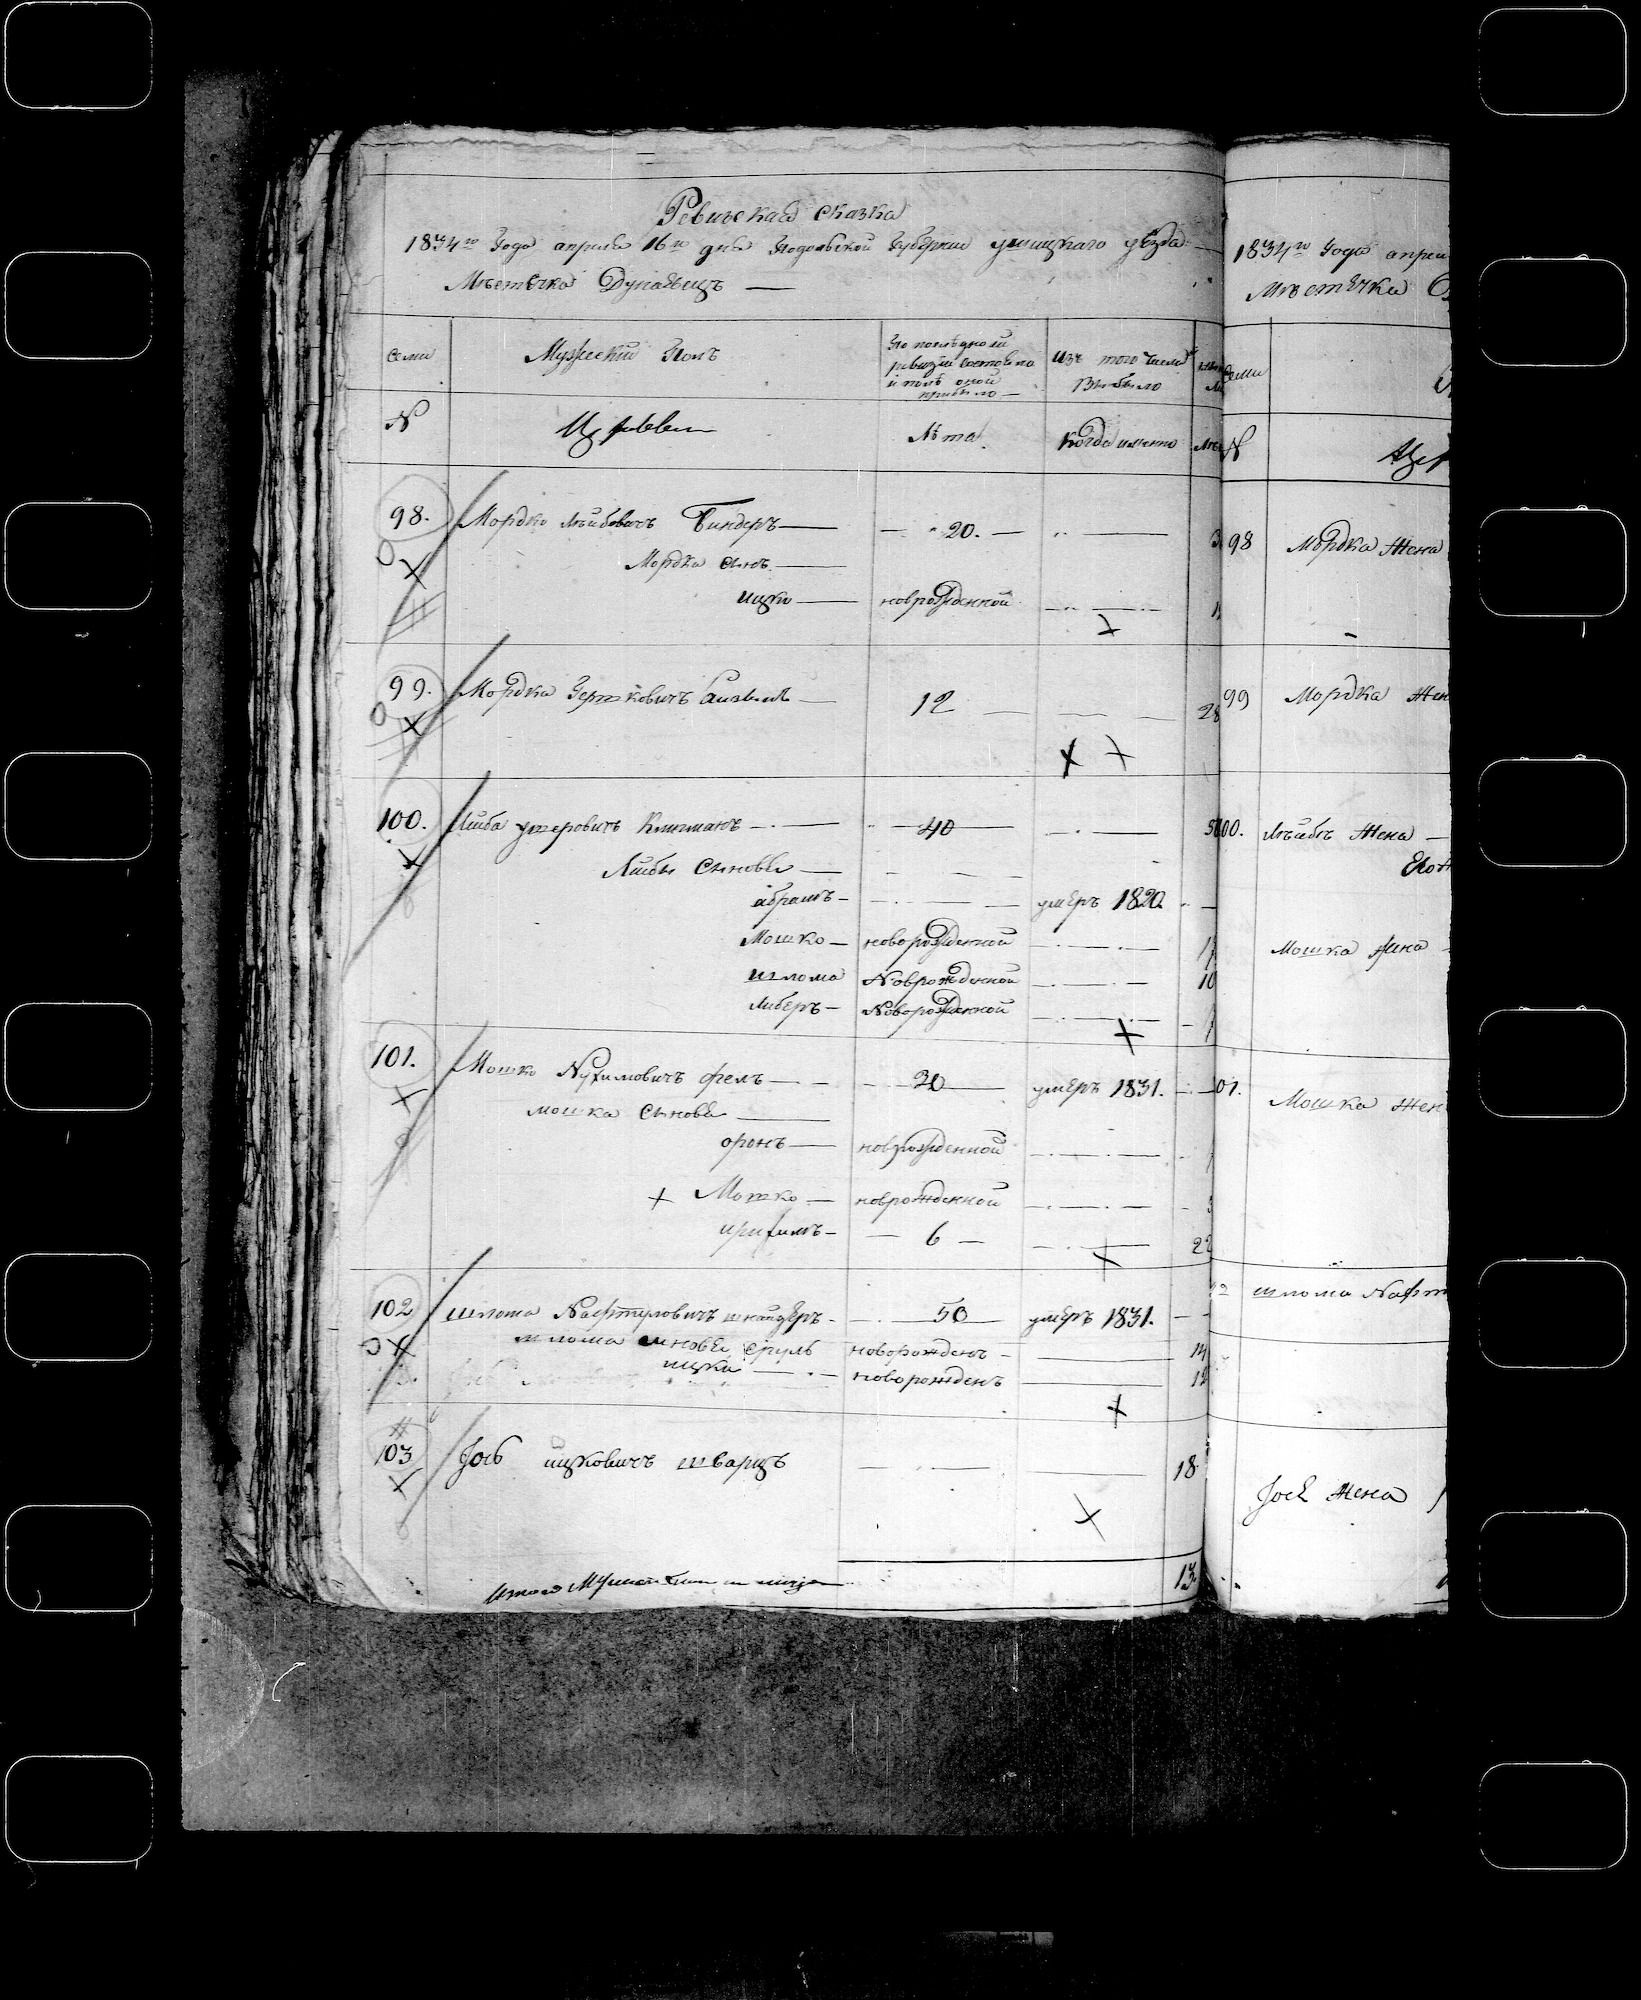 Ревизская сказка
1834го года апреля 16го дня Подольской Губернии ушицкаго уѣзда
Мѣстечка Дунаевецъ
семи
Мужеский Полъ
По последней ревизии состояло и послѣ оной прибыло
Изъ того числа выбыло
№
Лѣта
Когда именно
98. Мордко Лейбовичъ Биндеръ — 20. —
Мордка сынъ
ицко — новрожденной
99. Мордка 12 28
100. Лейба умеровичъ — 40
Лейбы сыновья
абрамъ — умеръ 1820.
Мошко — новорожденной
шлома Новрожденой 10
Либеръ — Новорожденной
101. Мошко Нухимовичъ фелъ — 30 умеръ 1831.
мошка сыновья
оронъ — новрожденной
Мотко — новрожденной
— 6 — 22
102 шлома Нафтуловичъ шнайдеръ — 50 умеръ 1831.
шлома сыновья сруль новорожденъ
ицко — новорожденъ
103 Іось ицковичъ шварцъ 18
13
1834го года апрел
Мѣстечка
семи
№
98 Мордка Жена
99 Мордка Жен
100. Лейбы Жена —
Мошка жена
01. Мошка Жен
шлома Нафт
Іося Жена